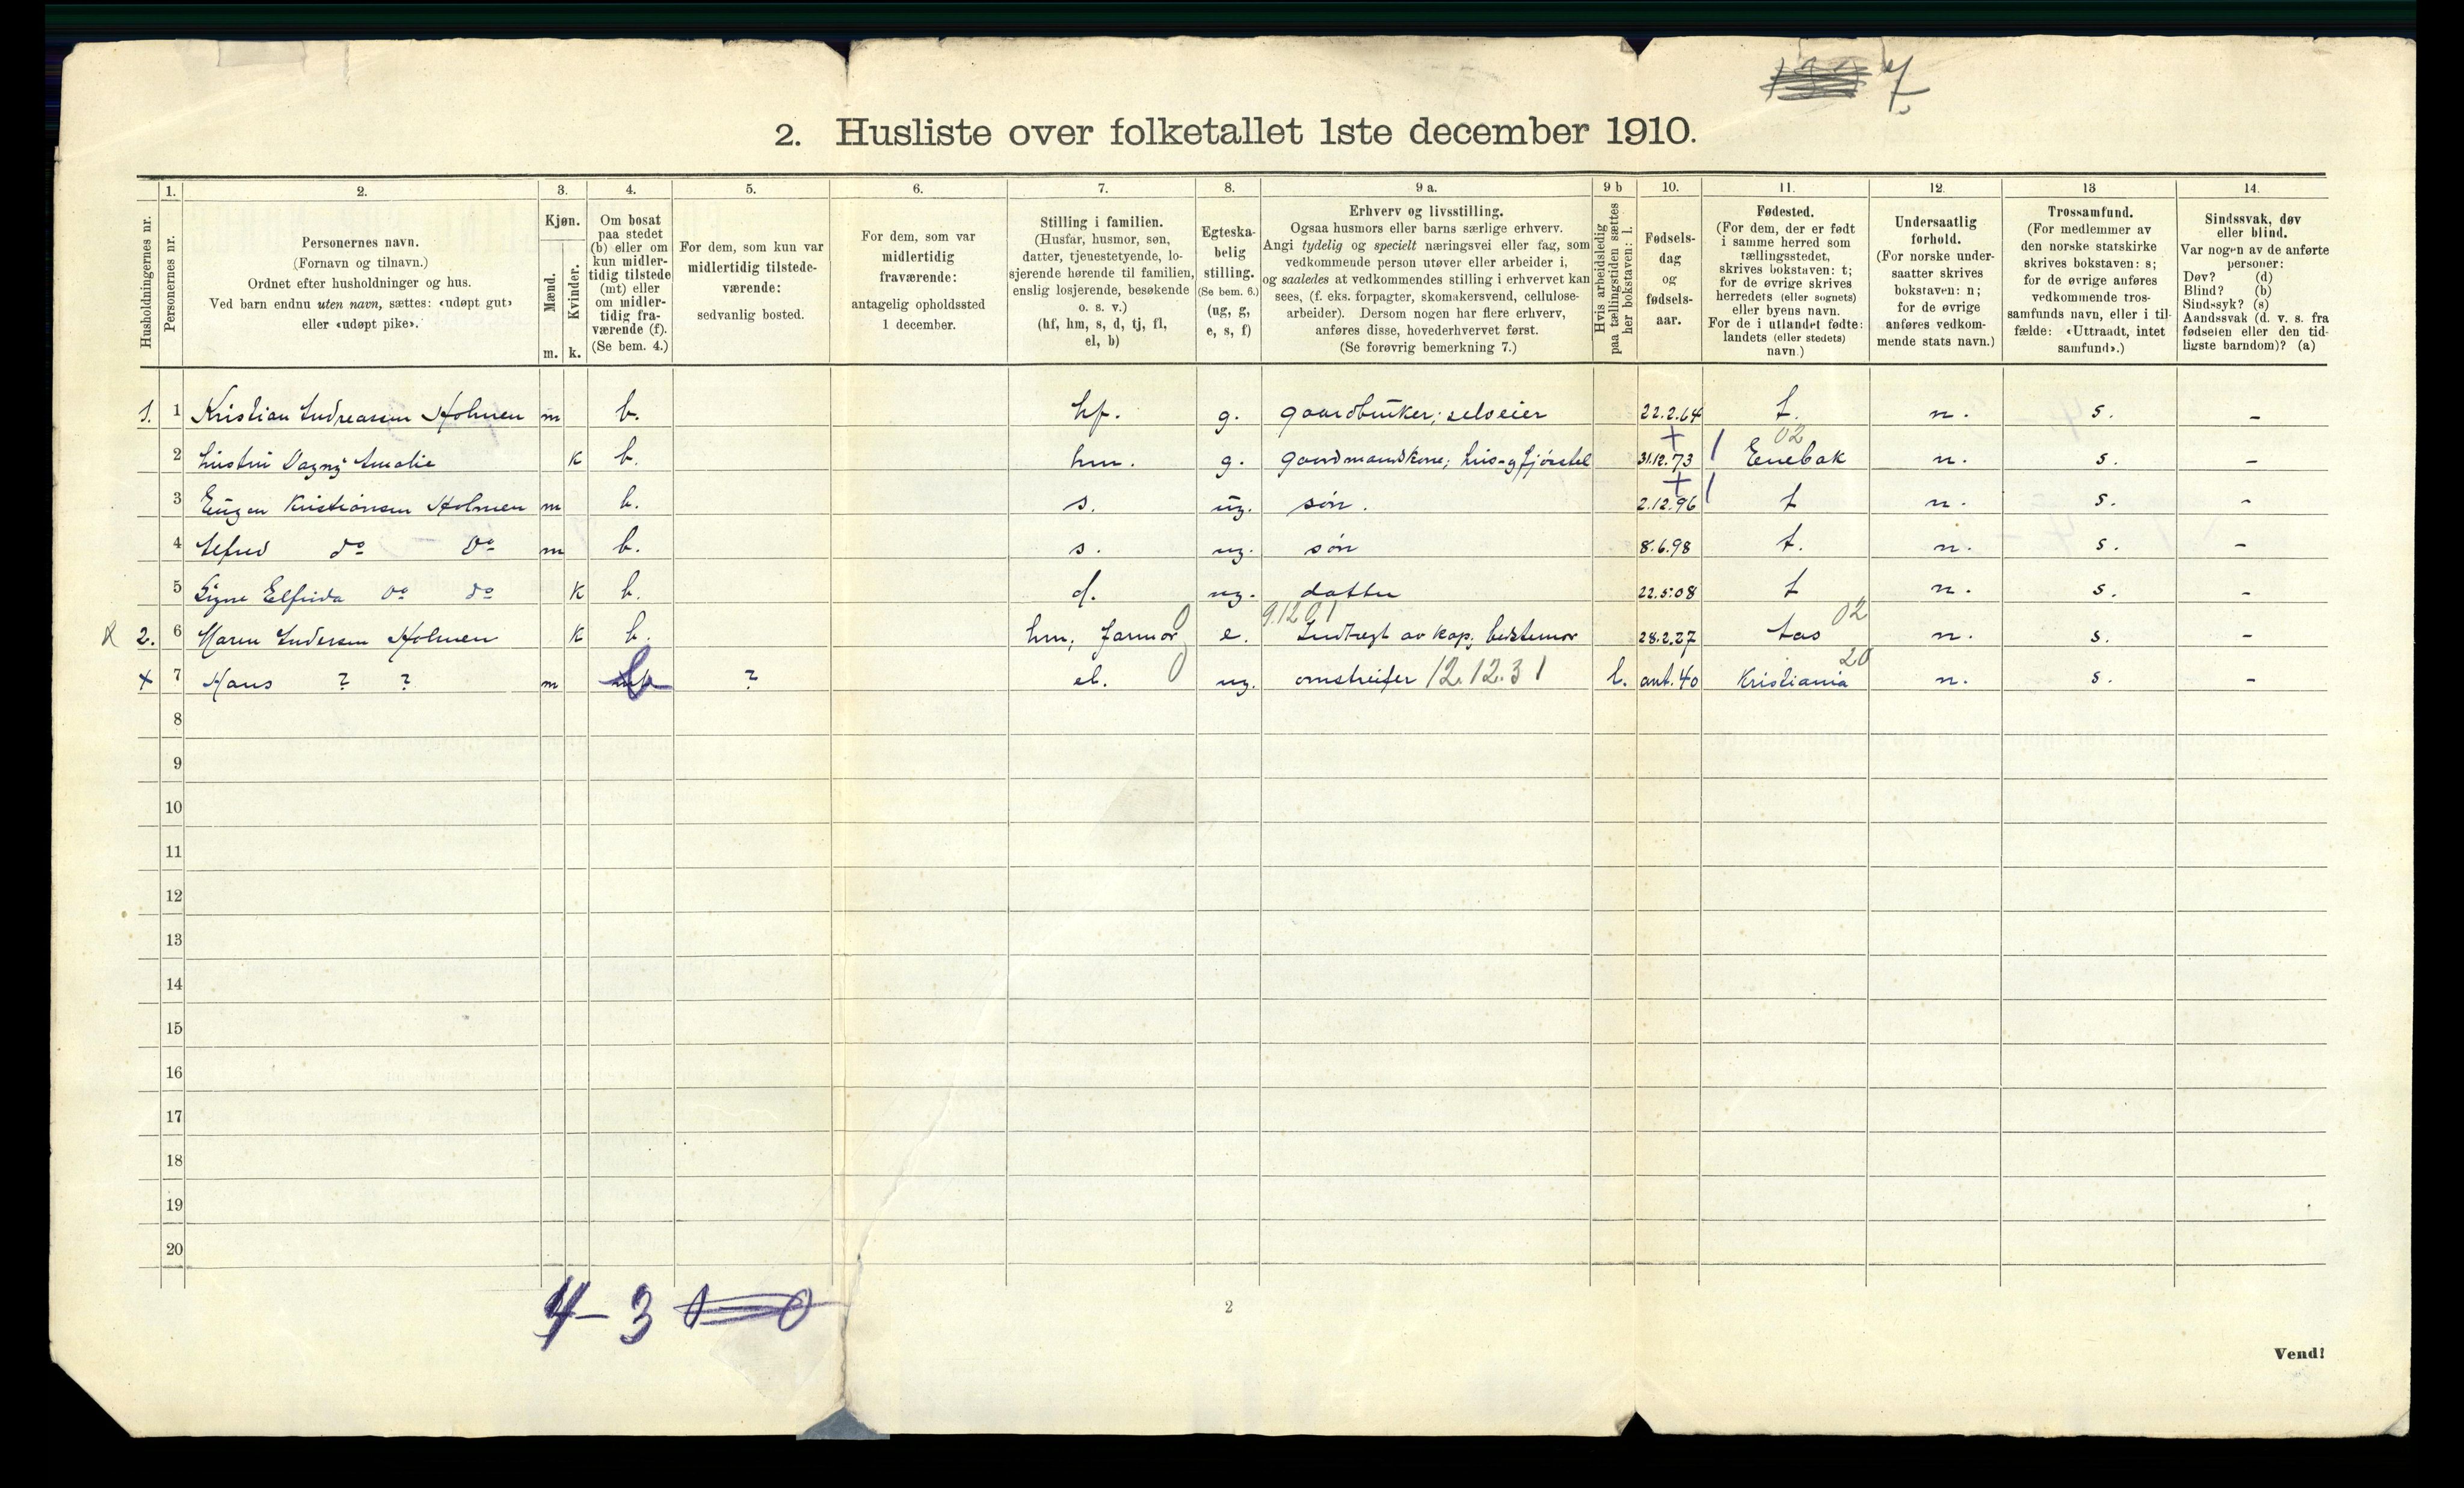 7
2. Husliste over folketallet 1ste december 1910.
Husholdningernes nr.
1.
Personernes nr.
2.
Personernes navn.
(Fornavn og tilnavn.)
Ordnet efter husholdninger og hus.
Ved barn endnu uten navn, sættes: «udøpt gut»
eller «udøpt pike».
3.
Kjøn.
Mænd.
m.
Kvinder.
k.
4.
Om bosat
paa stedet
(b) eller om
kun midler-
tidig tilstede
(mt) eller
om midler-
tidig fra-
værende (f).
(Se bem. 4.)
5.
For dem, som kun var
midlertidig tilstede-
værende:
sedvanlig bosted.
6.
For dem, som var
midlertidig
fraværende:
antagelig opholdssted
1 december.
7.
Stilling i familien.
(Husfar, husmor, søn,
datter, tjenestetyende, lo-
sjerende hørende til familien,
enslig losjerende, besøkende
o. s. v.)
(hf, hm, s, d, tj, fl,
el, b)
8.
Egteska-
belig
stilling.
(Se bem. 6.)
(ug, g,
e, s, f)
9 a.
Erhverv og livsstilling.
Ogsaa husmors eller barns særlige erhverv.
Angi tydelig og specielt næringsvei eller fag, som
vedkommende person utøver eller arbeider i,
og saaledes at vedkommendes stilling i erhvervet kan
sees, (f. eks. forpagter, skomakersvend, cellulose-
arbeider). Dersom nogen har flere erhverv,
anføres disse, hovederhvervet først.
(Se forøvrig bemerkning 7.)
9 b
Hvis arbeidsledig
paa tællingstiden sættes
her bokstaven: l.
10.
Fødsels-
dag
og
fødsels-
aar.
11.
Fødested.
(For dem, der er født
i samme herred som
tællingsstedet,
skrives bokstaven: t;
for de øvrige skrives
herredets (eller sognets)
eller byens navn.
For de i utlandet fødte:
landets (eller stedets)
navn.)
12.
Undersaatlig
forhold.
(For norske under-
saatter skrives
bokstaven: n;
for de øvrige
anføres vedkom-
mende stats navn.)
13
Trossamfund.
(For medlemmer av
den norske statskirke
skrives bokstaven: s;
for de øvrige anføres
vedkommende tros-
samfunds navn, eller i til-
fælde: «Uttraadt, intet
samfund».)
14.
Sindssvak, døv
eller blind.
Var nogen av de anførte
personer:
Døv? (d)
Blind? (b)
Sindssyk? (s)
Aandssvak (d. v. s. fra
fødselen eller den tid-
ligste barndom)? (a)
1. 1 Kristian Andreassen Holmen m b. hf. g. gaardbruker; selveier 22.2.64 t. n. s. –
02
2 hustru Dagny Amalie k b. hm. g. gaardmandskone; hus- og fjøsstel 31.12.73 Enebak n. s. –
3 Eugen Kristiansen Holmen m b. s. ug. søn. 2.12.96 t n. s. –
4 Alfred do do m b. s. ug. søn 8.6.98 t. n. s. –
5 Signe Elfrida do do k b. d. ug. datter 22.5.08 t n. s. –
0 9.12.01 02
2. 6 Maren Andersen Holmen k b. hm; farmor e. Indtægt av kap; bedstemor 28.2.27 n. s. –
x 7 Hans ? ? m b ? el. 0 ug. omstreifer 12.12.31 l. ant. 40 Kristiania 20 n. s. –
8
9
10
11
12
13
14
15
16
17
18
19
20
4 – 3
2
Vend!